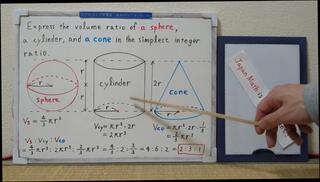 Express the volume ratio of a sphere,
a cylinder, and a cone in the simplest integer
ratio.
r
r
sphere
cylinder
r
2r
cone
r
Vs = 4/3 πr³
Vcy = πr²·2r
= 2πr³
Vco = πr²·2r·1/3
Vs : Vcy : Vco
= 4/3 πr³ : 2πr³ : 2/3 πr³ = 4/3 : 2 : 2/3 = 4 : 6 : 2 = 2 : 3 : 1
Japan Math